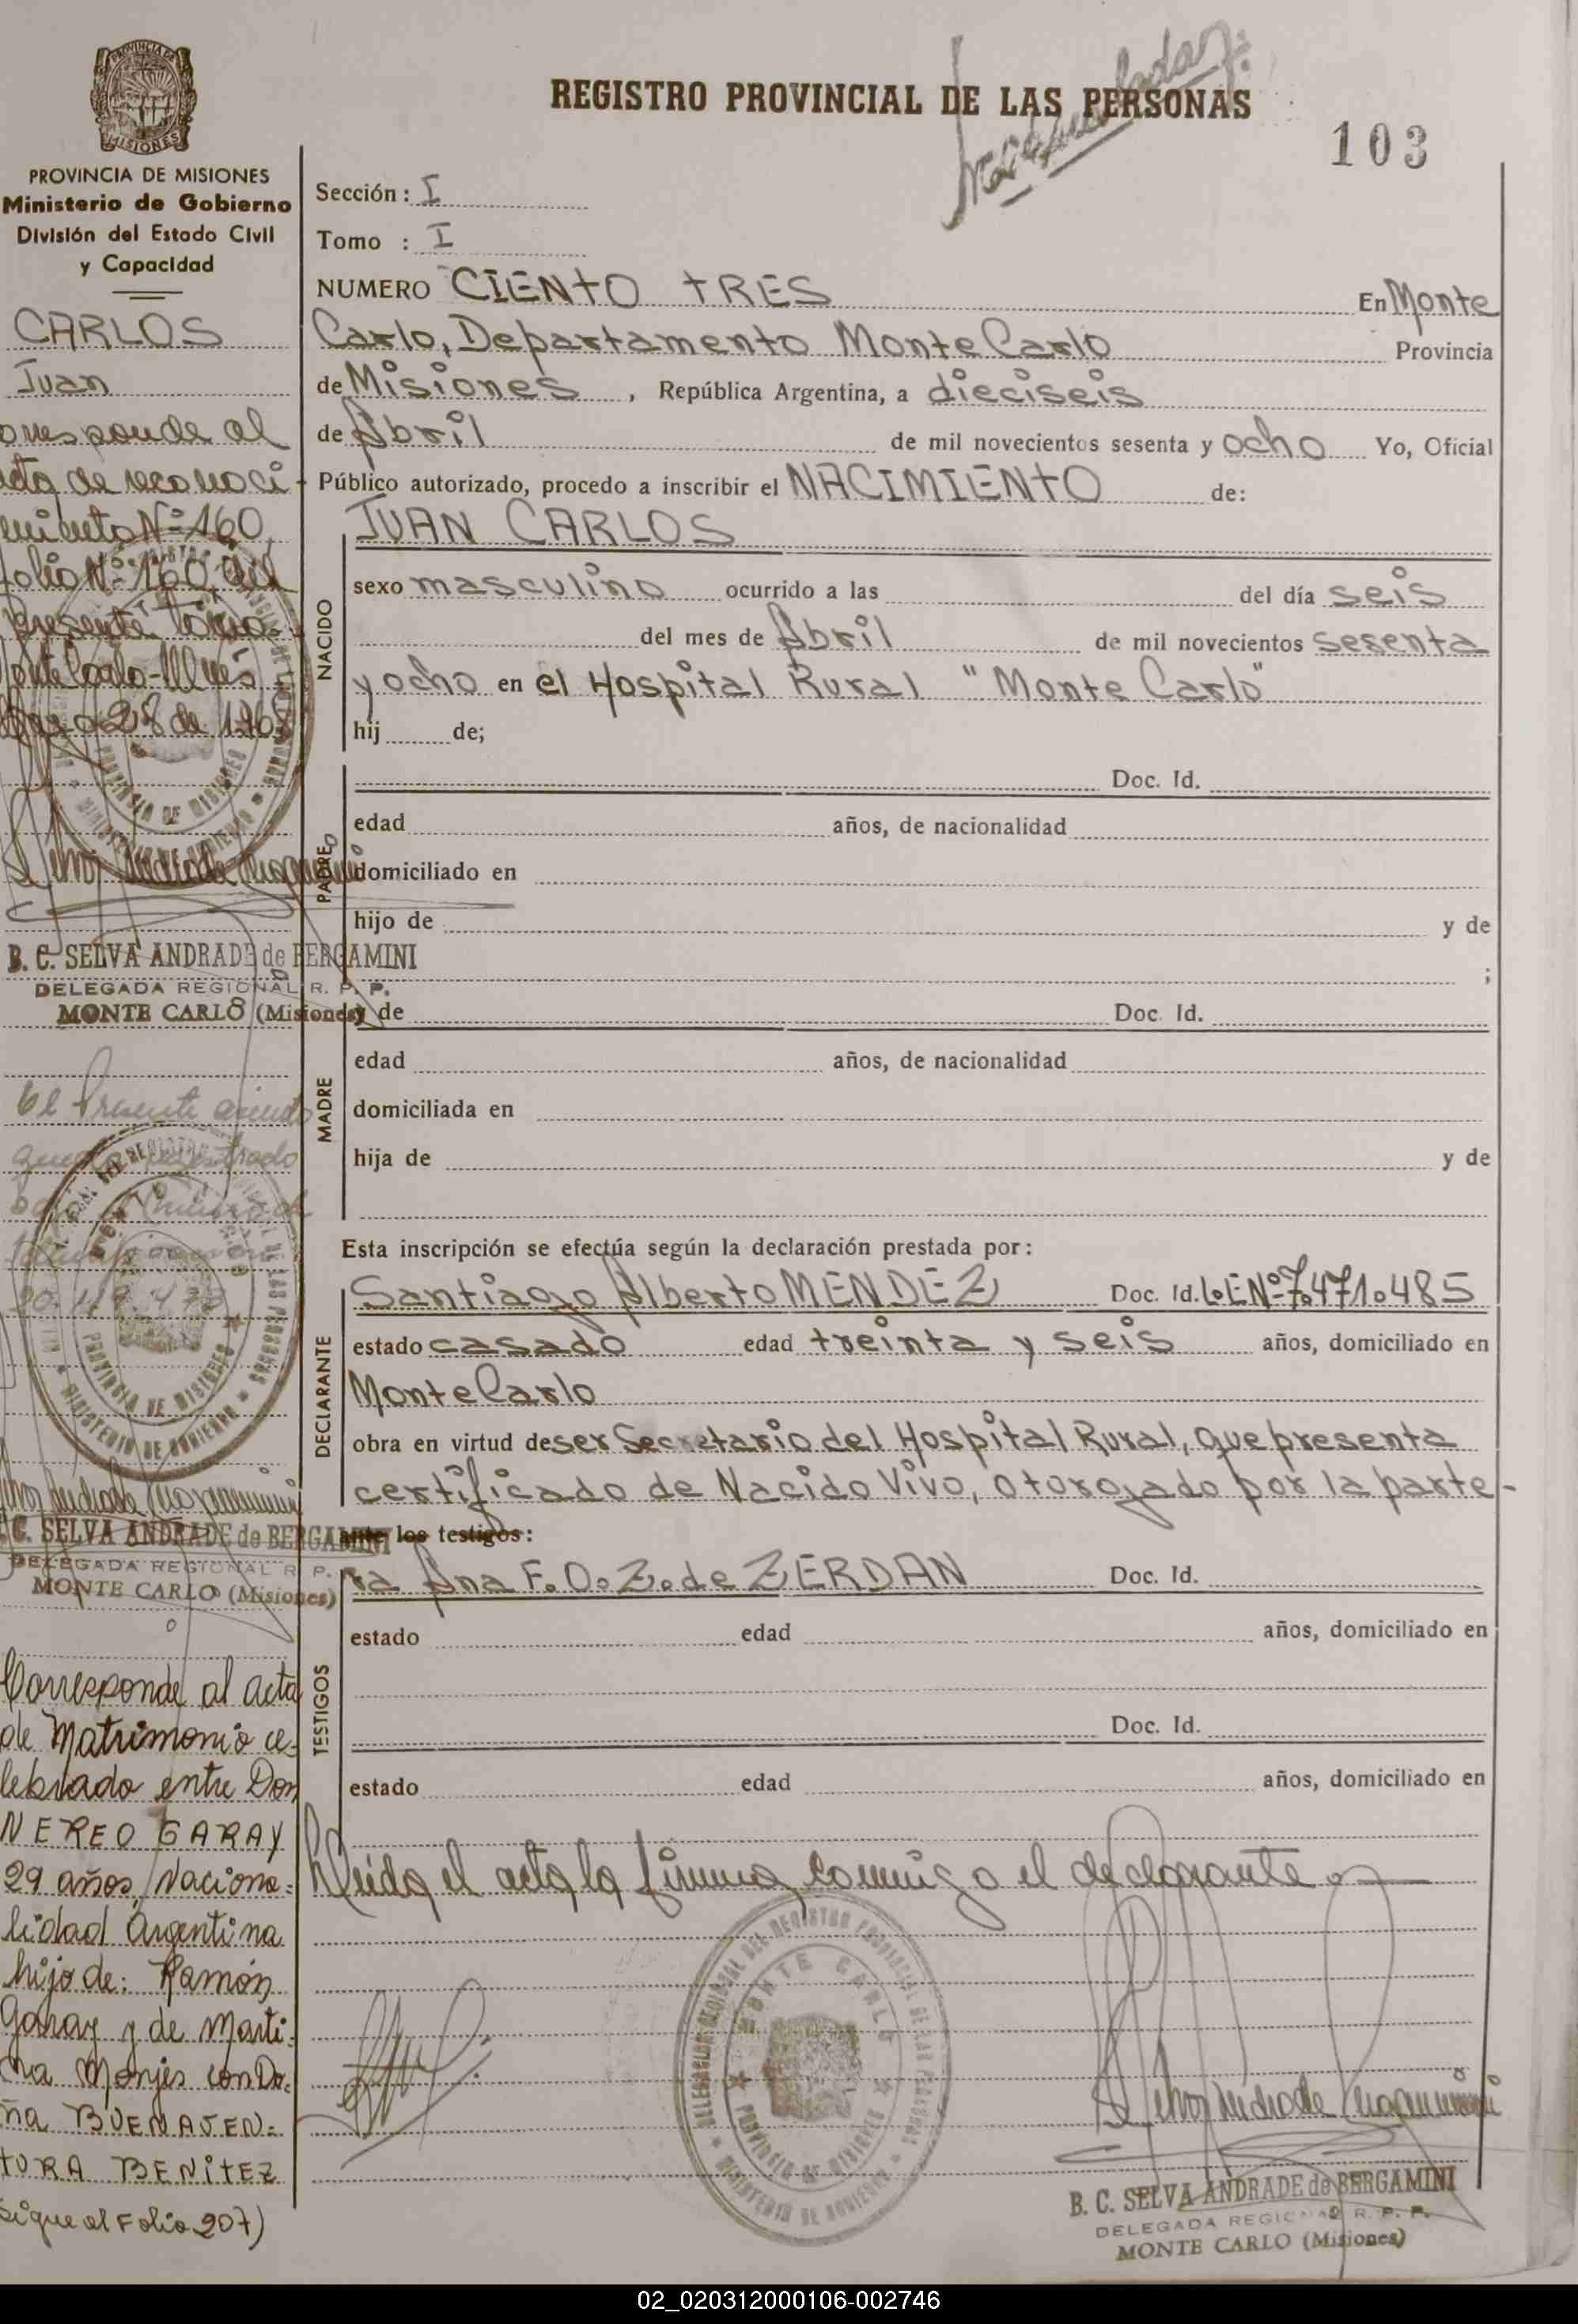 REGISTRO PROVINCIAL DE LAS PERSONAS
103
PROVINCIA DE MISIONES
Ministerio de Gobierno
División del Estado Civil
y Capacidad
CARLOS
Juan
orresponde al
acta de reconoci-
miento Nº 160,
folio Nº 160 del
presente tomo.
B. C. SELVA ANDRADE de BERGAMINI
DELEGADA REGIONAL R. P. P.
MONTE CARLO (Misiones)
El Presente asiento
B. C. SELVA ANDRADE de BERGAMINI
DELEGADA REGIONAL R. P. P.
MONTE CARLO (Misiones)
Corresponde al acta
de Matrimonio ce-
lebrado entre Don
NEREO GARAY
29 años, Naciona-
lidad Argentina
hijo de: Ramón
Garay y de Marti-
na Monjes con Do-
ña BUENAVEN-
TURA BENITEZ
Sigue al Folio 207)
Sección: I
Tomo : I
NUMERO CIENTO TRES En Monte
Carlo, Departamento Monte Carlo Provincia
de Misiones, República Argentina, a dieciseis
de Abril de mil novecientos sesenta y ocho Yo, Oficial
Público autorizado, procedo a inscribir el NACIMIENTO de:
NACIDO
JUAN CARLOS
sexo masculino ocurrido a las del día seis
del mes de Abril de mil novecientos sesenta
y ocho en el Hospital Rural "Monte Carlo"
hij de;
PADRE
Doc. Id.
edad años, de nacionalidad
domiciliado en
hijo de y de
;
MADRE
y de Doc. Id.
edad años, de nacionalidad
domiciliada en
hija de y de
Esta inscripción se efectúa según la declaración prestada por:
DECLARANTE
Santiago Alberto MENDEZ Doc. Id. L.E.Nº 7.471.485
estado casado edad treinta y seis años, domiciliado en
Monte Carlo
obra en virtud de ser Secretario del Hospital Rural, que presenta
certificado de Nacido Vivo, otorgado por la parte-
ante los testigos:
TESTIGOS
ra Ana F. O. Z. de ZERDAN Doc. Id.
estado edad años, domiciliado en
Doc. Id.
estado edad años, domiciliado en
Leida el acta la firma conmigo el declarante
DELEGACION REGIONAL DEL REGISTRO PROVINCIAL DE LAS PERSONAS
MONTE CARLO
PROVINCIA DE MISIONES
MINISTERIO DE GOBIERNO
B. C. SELVA ANDRADE de BERGAMINI
DELEGADA REGIONAL R. P. P.
MONTE CARLO (Misiones)
02_020312000106-002746